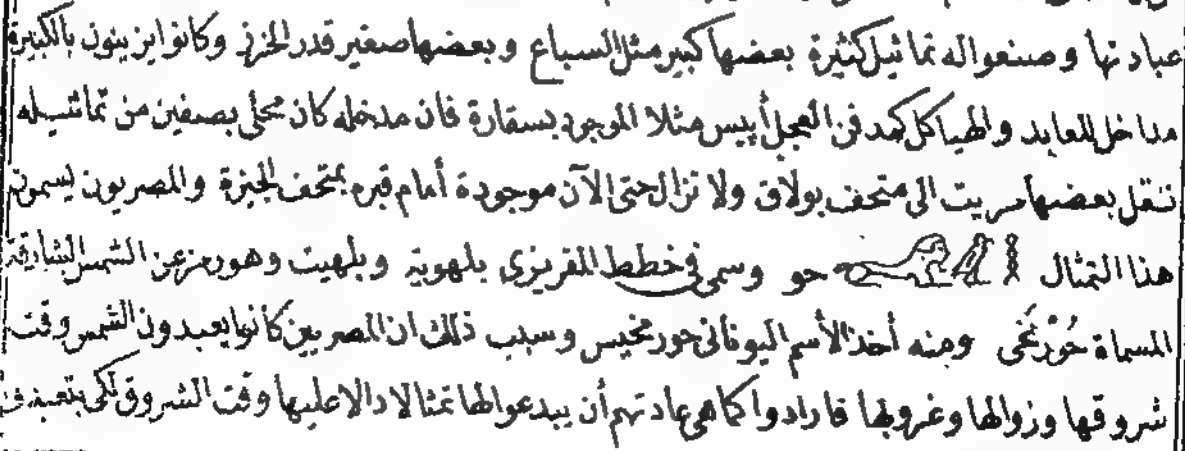 عبادتها وصنعوا له تماثيل كثيرة بعضها كبير مثل السباع وبعضها صغير قدر الخرز وكانوا يزينون بالكبيرة
مداخل المعابد والهياكل كمدفن العجل أبيس مثلا الموجود بسقارة فان مدخله كان محلى بصفين من تماثيله
نقل بعضها مريت الى متحف بولاق ولا تزال حتى الآن موجودة أمام قبره بمتحف الجيزة والمصريون يسمون
هذا التمثال حو وسمى فى خطط المقريزى بلهوية وبلهيت وهو رمز عن الشمس الشارقة
المسماة حُورْمَخى ومنه أخذ الأسم اليونانى حورمخيس وسبب ذلك ان المصريين كانوا يعبدون الشمس وقت
شروقها وزوالها وغروبها فارادوا كما هى عادتهم أن يبدعوا لها تمثالا دالا عليها وقت الشروق لكى